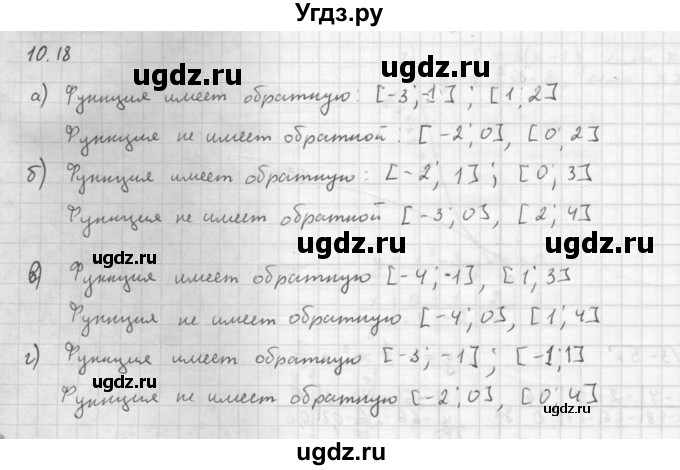 Угдз.ру
10.18
ugdz.ru
ugdz.ru
а) Функция имеет обратную: [-3;-1]; [1;2]
Функция не имеет обратной: [-2;0], [0;2]
ugdz.ru
б) Функция имеет обратную: [-2; 1]; [0; 3]
Функция не имеет обратной [-3;0], [2;4]
ugdz.ru
ugdz.ru
в) Функция имеет обратную [-4;-1], [1;3]
Функция не имеет обратной [-4;0], [1;4]
ugdz.ru
г) Функция имеет обратную [-3; -1]; [-1;1]
Функция не имеет обратную [-2;0], [0;4]
ugdz.ru
ugdz.ru
ugdz.ru